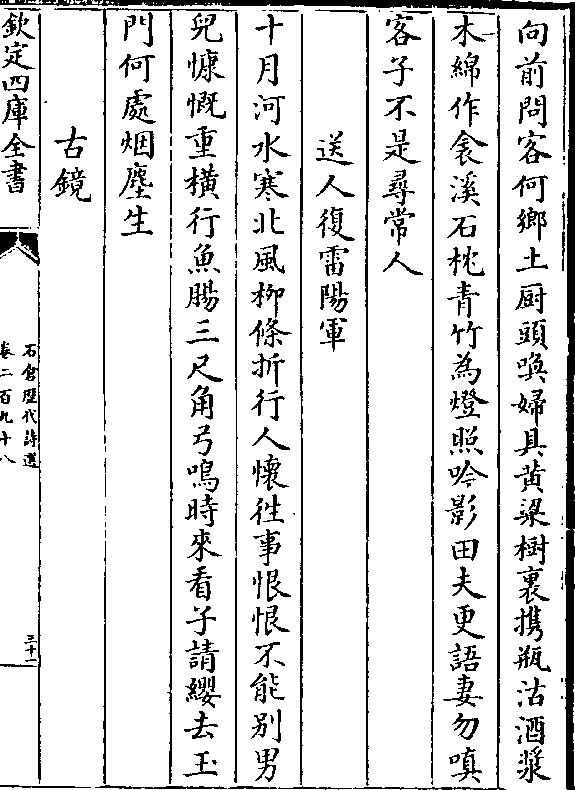 向前問客何鄉土厨頭喚婦具黄粱樹裏携瓶沽酒漿
木綿作衾溪石枕青竹為燈照吟影田夫更語妻勿嗔
客子不是尋常人
送人復雷陽軍
十月河水寒北風柳條折行人懷徃事恨恨不能别男
兒慷慨重横行魚腸三尺角弓鳴時來看子請纓去玉
門何處烟塵生
古鏡
欽定四庫全書
石倉歴代詩選
卷二百九十八
三十一